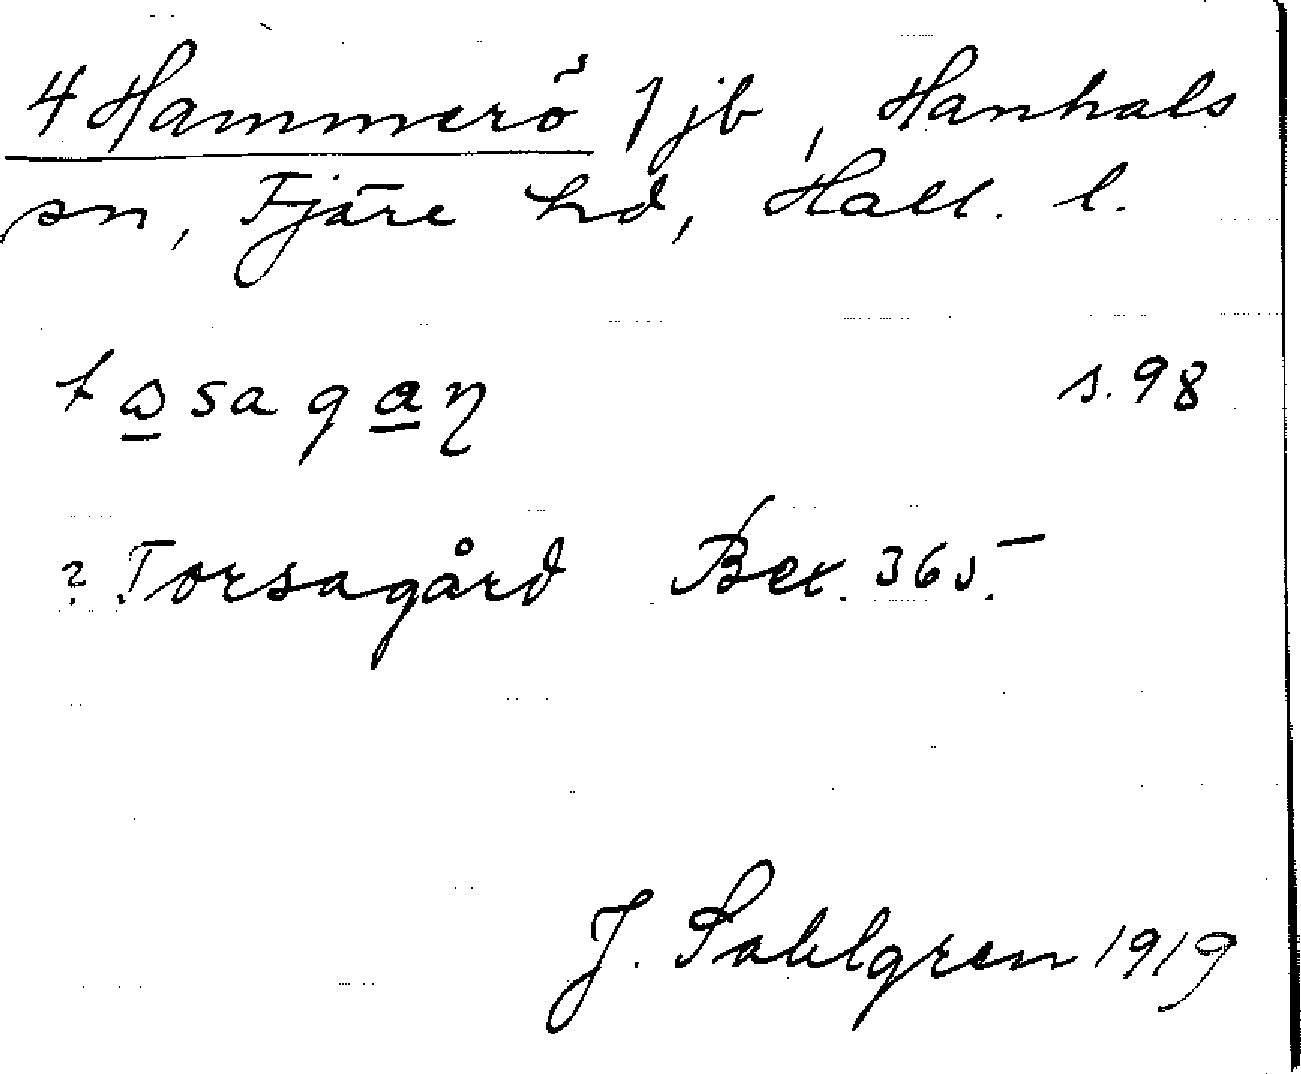 4 Hammerö 1 jb, Hanhals
sn, Fjäre hd, Hall. l.
s. 98
? Torsagård Bex. 365.
J. Sahlgren 1919